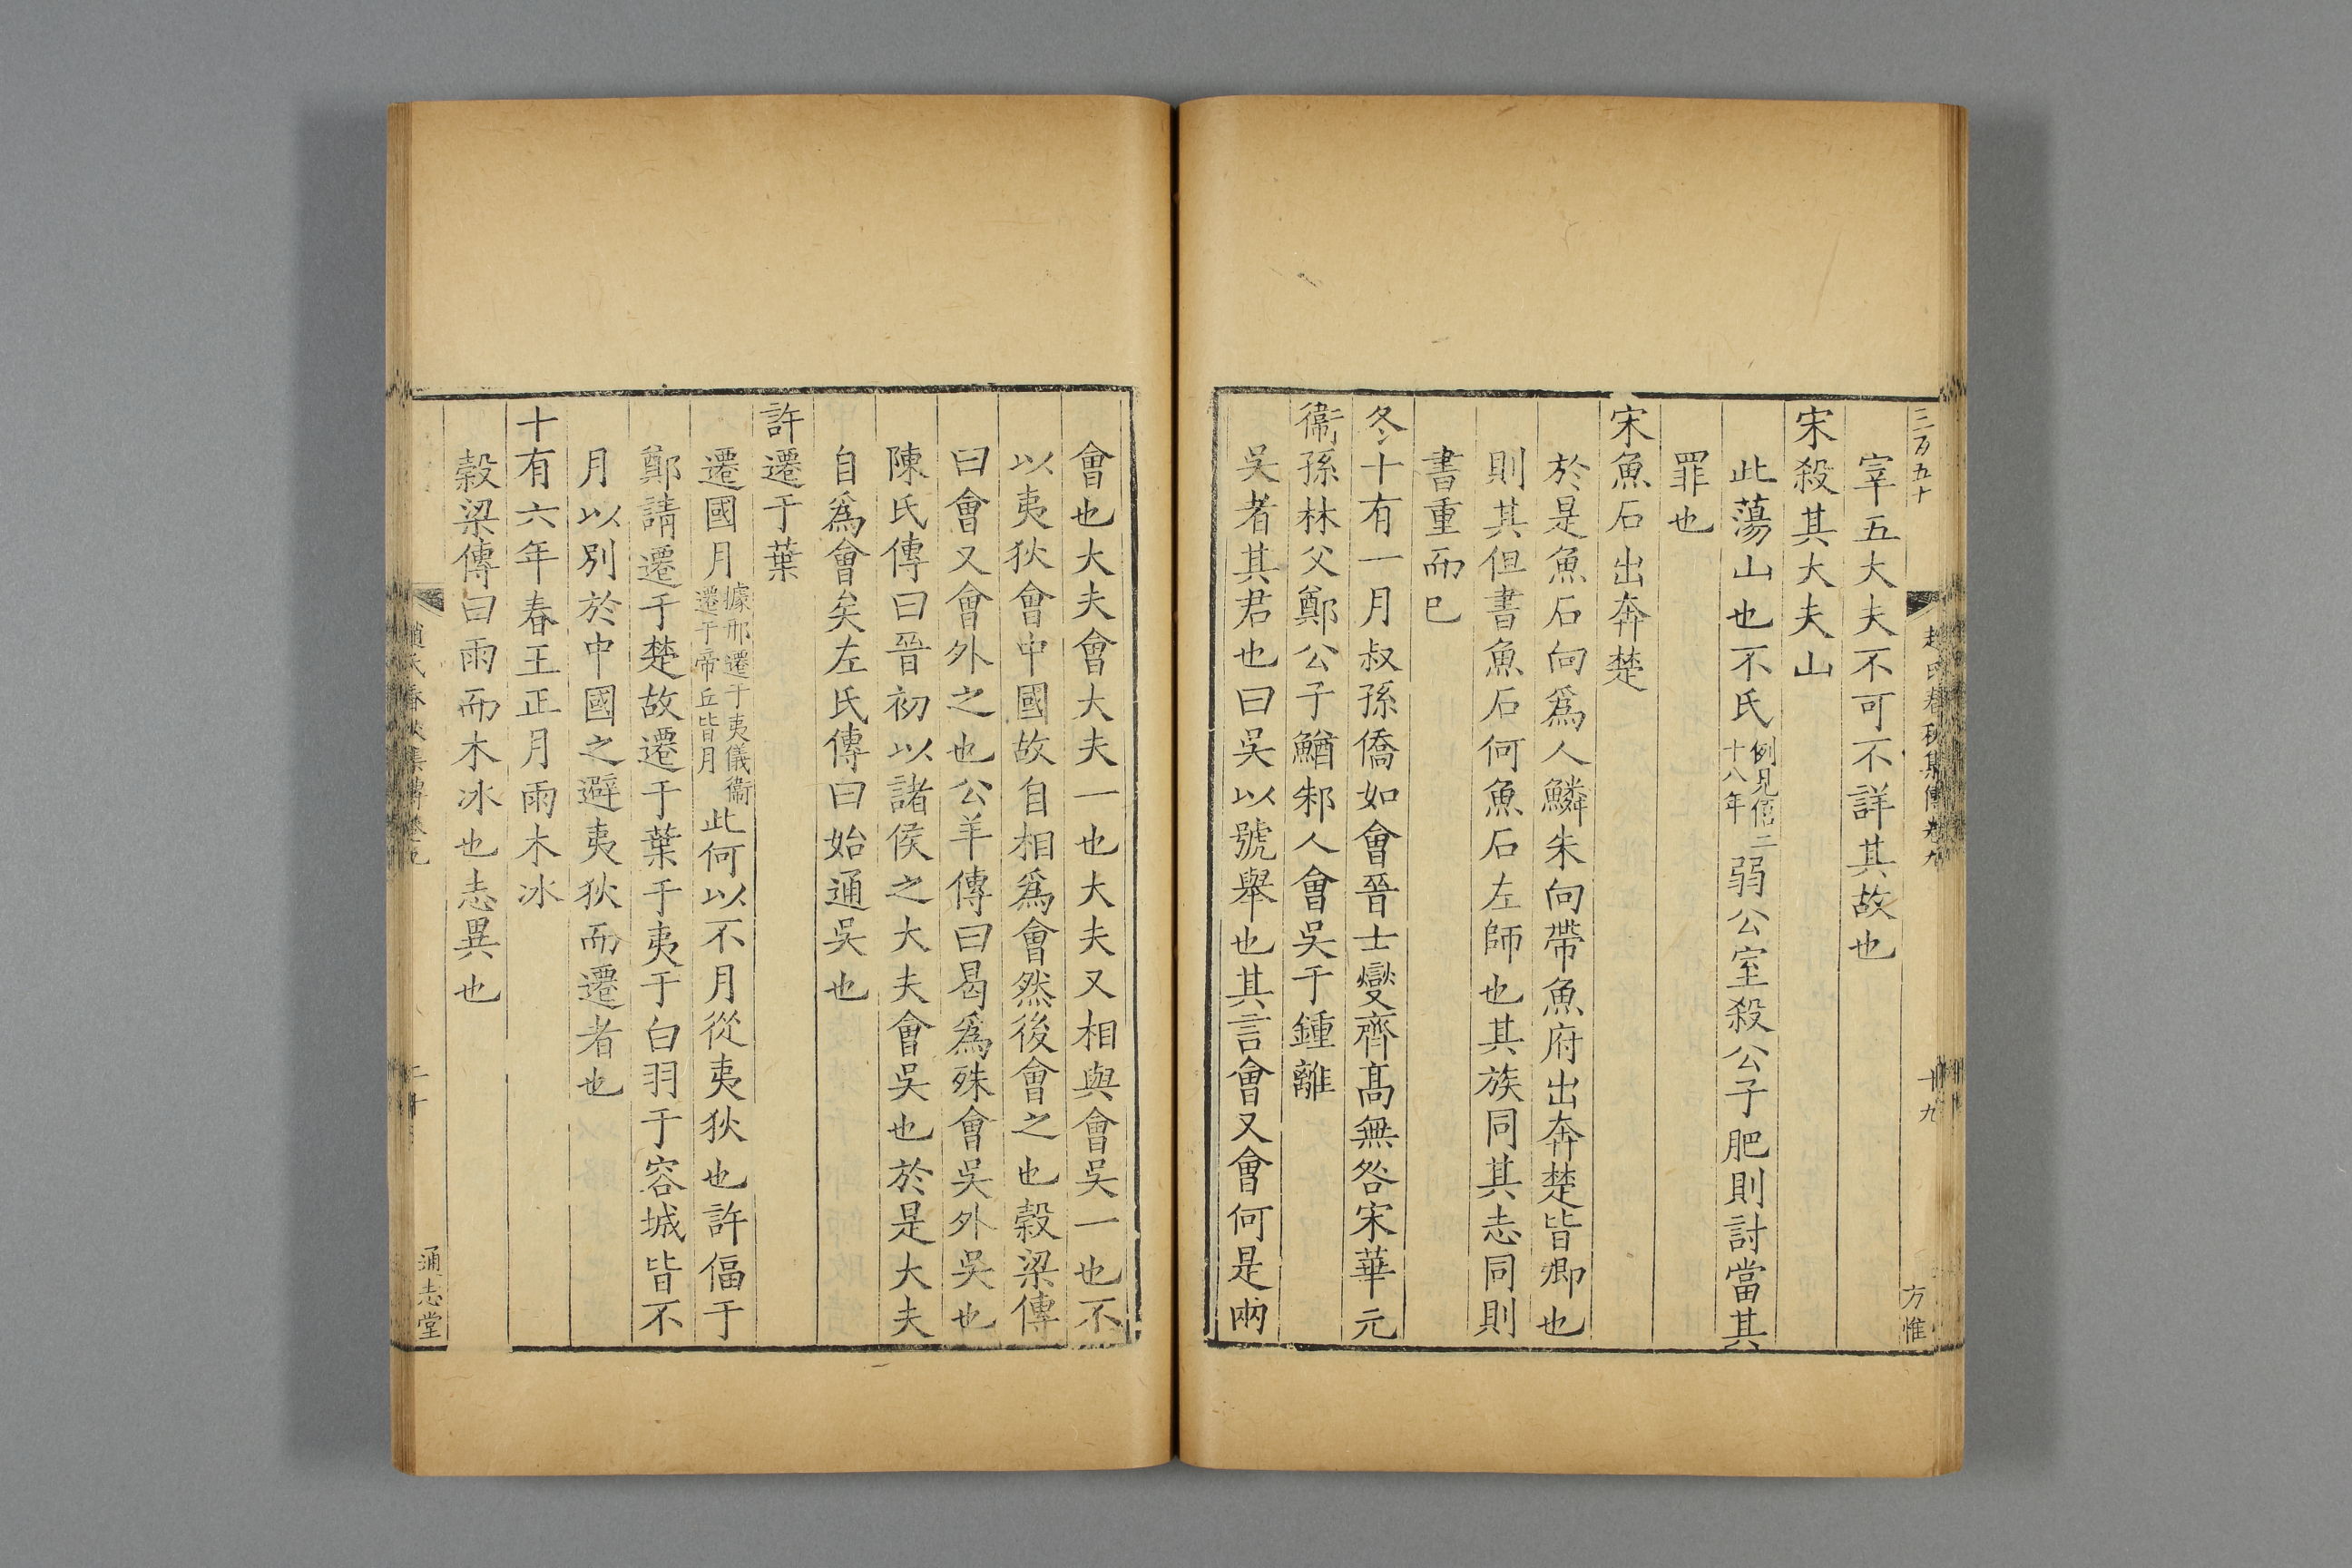 三百五十
趙氏春秋集傳卷九
十九
方惟
宰五大夫不可不詳其故也
宋殺其大夫山
此蕩山也不氏例見僖二十八年弱公室殺公子肥則討當其
罪也
宋魚石出奔楚
於是魚石向爲人鱗朱向帶魚府出奔楚皆卿也
則其但書魚石何魚石左師也其族同其志同則
書重而已
冬十有一月叔孫僑如會晉士燮齊高無咎宋華元
衞孫林父鄭公子鰌邾人會吳于鍾離
吳者其君也曰吳以號舉也其言會又會何是兩
會也大夫會大夫一也大夫又相與會吳一也不
以夷狄會中國故自相爲會然後會之也穀梁傳
曰會又會外之也公羊傳曰曷爲殊會吳外吳也
陳氏傳曰晉初以諸侯之大夫會吳也於是大夫
自爲會矣左氏傳曰始通吳也
許遷于葉
遷國月據邢遷于夷儀衞遷于帝丘皆月此何以不月從夷狄也許偪于
鄭請遷于楚故遷于葉于夷于白羽于容城皆不
月以別於中國之避夷狄而遷者也
十有六年春王正月雨木冰
穀梁傳曰雨而木冰也志異也
趙氏春秋集傳卷九
二十
通志堂